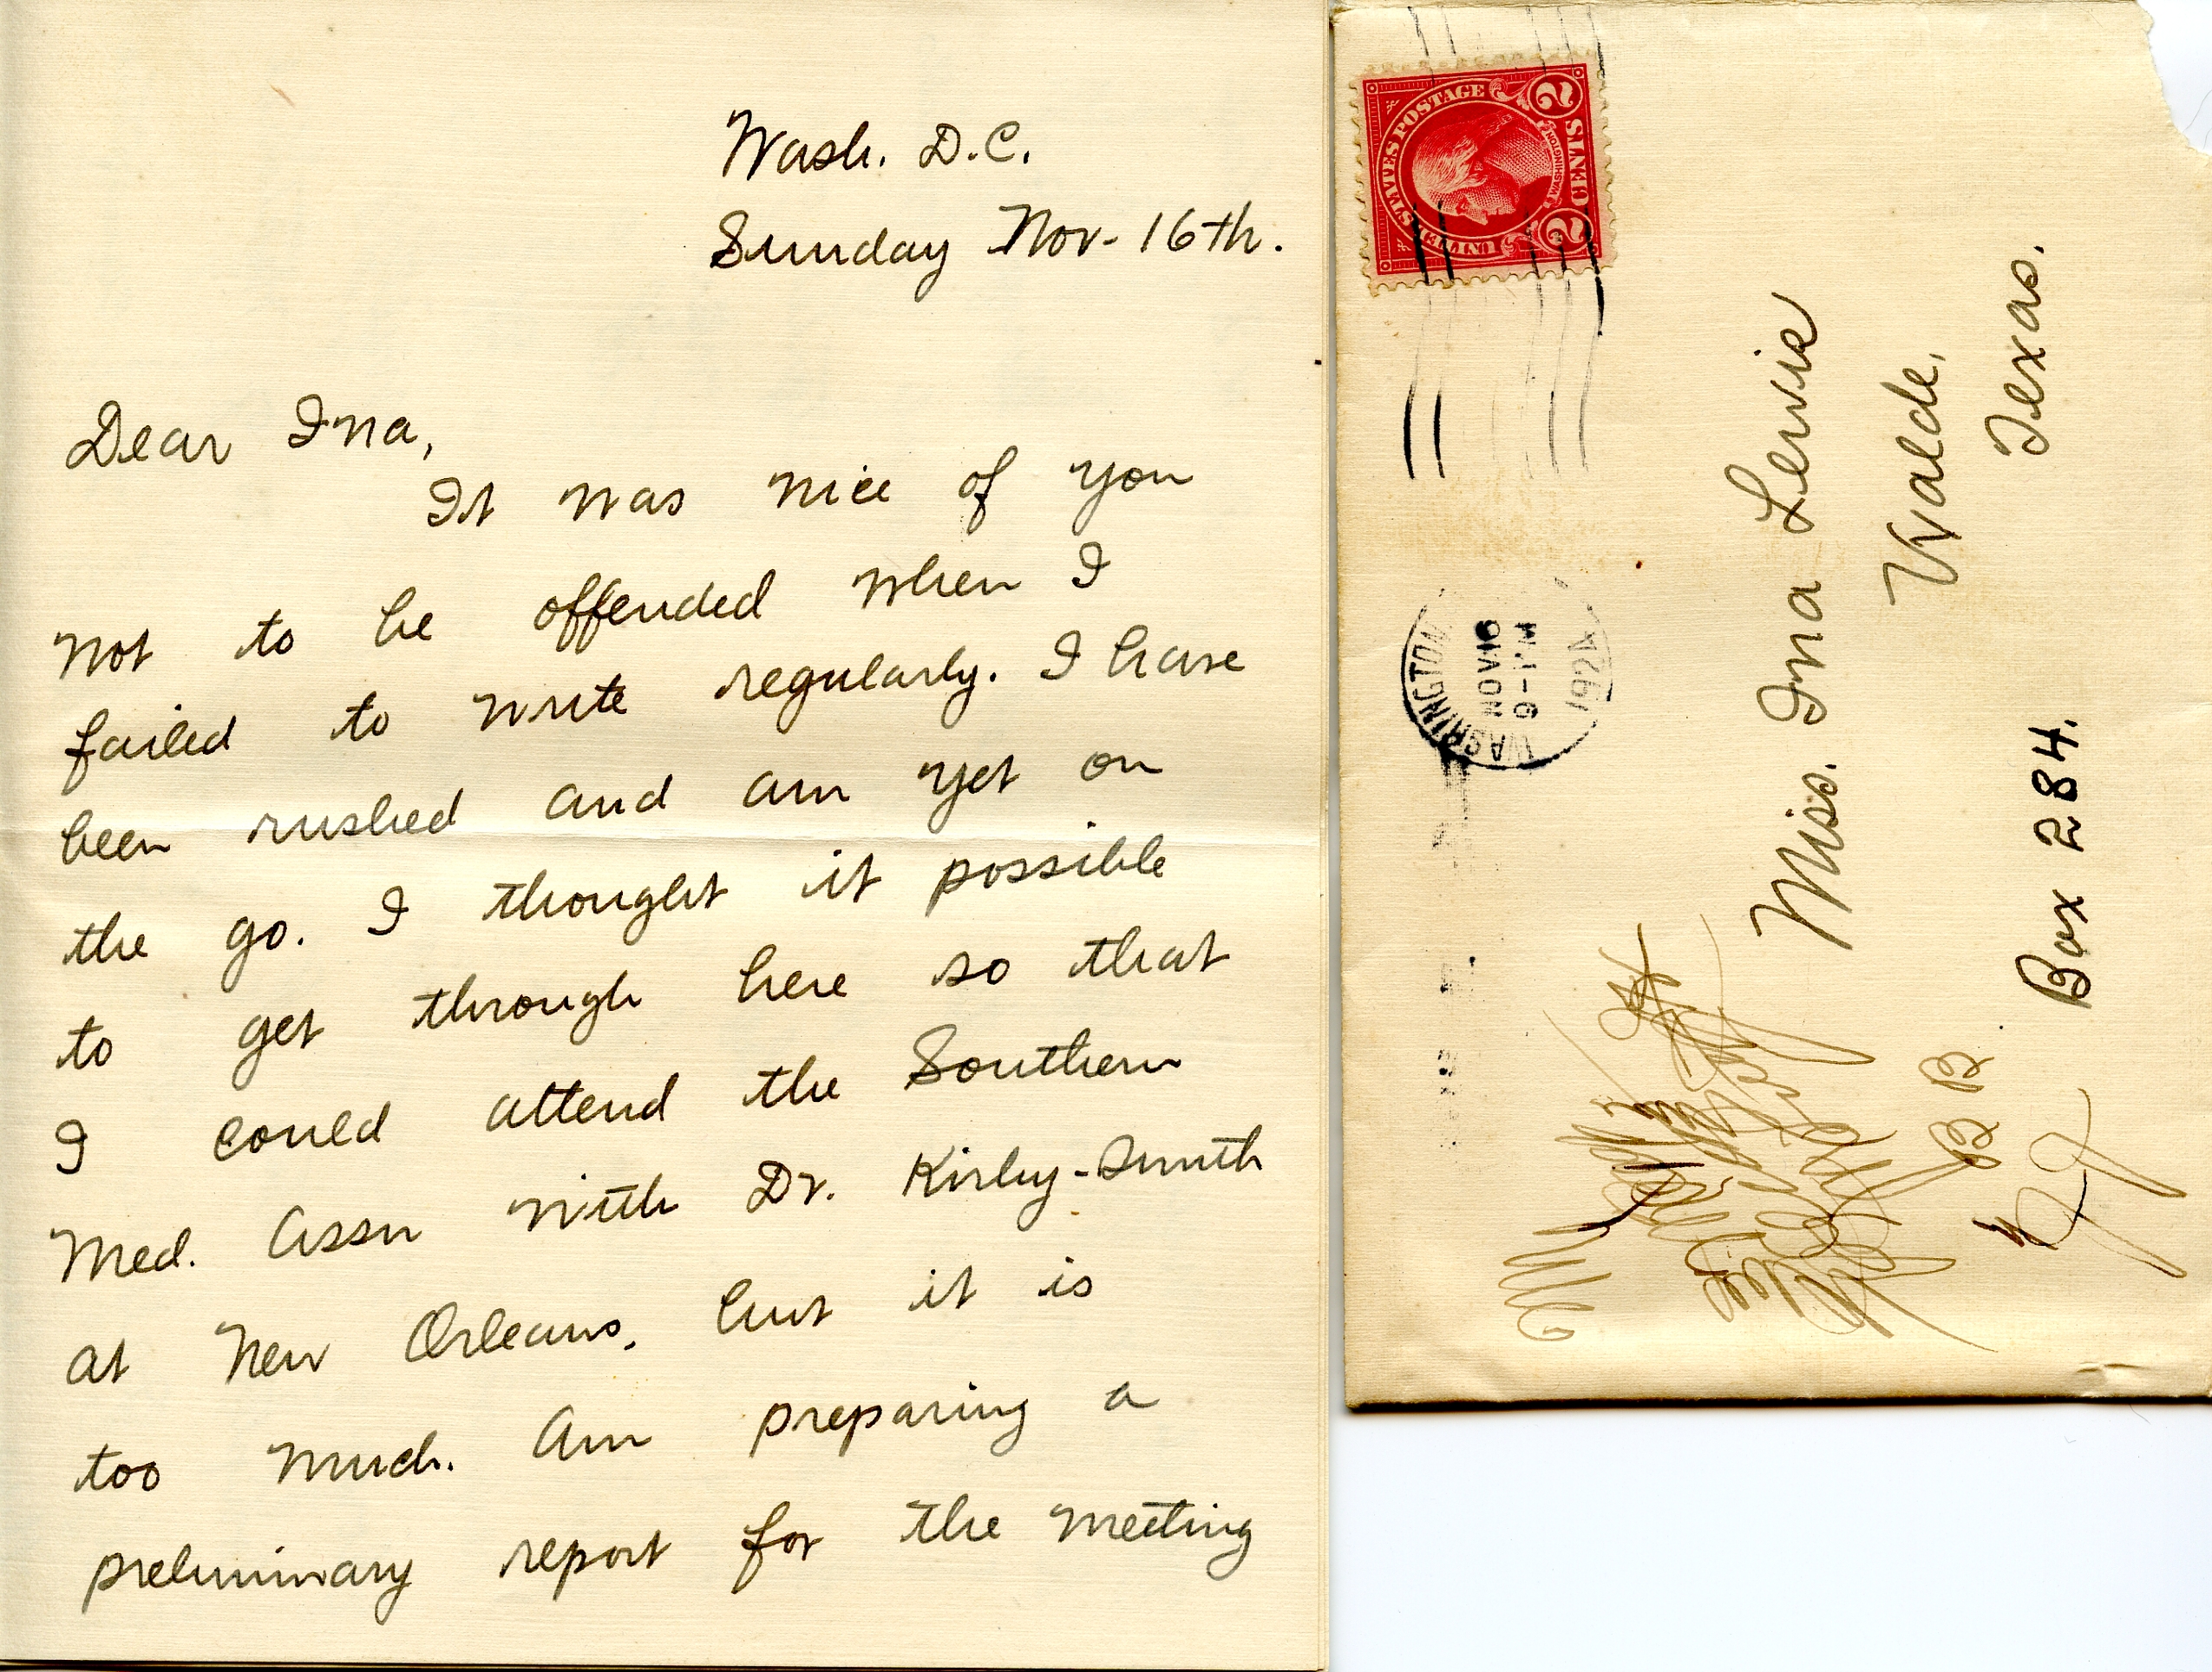 Wash. D.C.
Sunday Nov- 16th.
Dear Ina,
It was nice of you
not to be offended when I
failed to write regularly. I have
been rushed and am yet on
the go. I thought it possible
to get through here so that
I could attend the Southern
Med. Assn with Dr. Kirby-Smith
at New Orleans, but it is
too much. Am preparing a
preliminary report for the meeting
UNITED STATES POSTAGE
WASHINGTON
2 CENTS 2
WASHINGTON
NOV 16
9-PM
1924
Miss. Ina Lewie
Uvalde,
Texas.
Box 284.